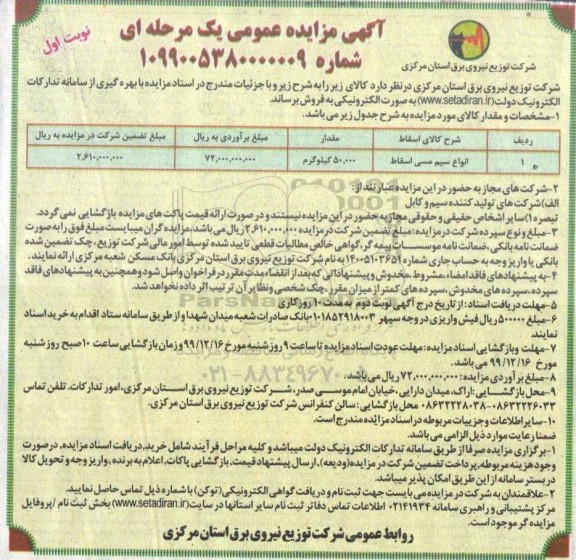 آگهی مزایده عمومی یک مرحله ای
شماره ۱۰۹۹۰۰۵۳۸۰۰۰۰۰۰۹
نوبت اول
شرکت توزیع نیروی برق استان مرکزی
شرکت توزیع نیروی برق استان مرکزی در نظر دارد کالای زیر را به شرح زیر و با جزئیات مندرج در اسناد مزایده با بهره گیری از سامانه تدارکات
الکترونیک دولت (www.setadiran.ir) به صورت الکترونیکی به فروش برساند.
۱-مشخصات و مقدار کالای مورد مزایده به شرح جدول زیر می باشد.
ردیف شرح کالای اسقاط مقدار مبلغ برآوردی به ریال مبلغ تضمین شرکت در مزایده به ریال
۱ انواع سیم مسی اسقاط ۵۰,۰۰۰ کیلوگرم ۷۲,۰۰۰,۰۰۰,۰۰۰ ۲,۶۱۰,۰۰۰,۰۰۰
۲-شرکت های مجاز به حضور در این مزایده عبارتند از:
الف) شرکت های تولید کننده سیم و کابل
تبصره ۱) سایر اشخاص حقیقی و حقوقی مجاز به حضور در این مزایده نیستند و در صورت ارائه قیمت پاکت های مزایده بازگشایی نمی گردد.
۳-مبلغ و نوع سپرده شرکت در مزایده: مبلغ تضمین شرکت در مزایده ۲,۶۱۰,۰۰۰,۰۰۰ ریال می باشد، مزایده گران میبایست مبلغ فوق را به صورت
ضمانت نامه بانکی، ضمانت نامه موسسات بیمه گر، گواهی خالص مطالبات قطعی تایید شده توسط امور مالی شرکت توزیع، چک تضمین شده
بانکی یا واریز وجه به حساب جاری شماره ۱۴۰۰۵۱۰۳۶۵۱ به نام شرکت توزیع نیروی برق استان مرکزی بانک مسکن شعبه مرکزی ارائه نمایند.
۴-به پیشنهادهای فاقد امضاء، مشروط، مخدوش و پیشنهاداتی که بعد از انقضاء مدت مقرر در فراخوان واصل شود و همچنین به پیشنهادهای فاقد
سپرده، سپرده های مخدوش، سپرده های کمتر از میزان مقرر، چک شخصی و نظایر آن ترتیب اثر داده نخواهد شد.
۵-مهلت دریافت اسناد: از تاریخ درج آگهی نوبت دوم به مدت ۱۰ روز کاری
۶-مبلغ ۵۰۰۰۰۰ ریال فیش واریزی در وجه سپهر ۰۱۰۱۸۵۲۹۱۸۰۰۳ بانک صادرات شعبه میدان شهدا و از طریق سامانه ستاد اقدام به خرید اسناد
نمایند
۷-مهلت و بازگشایی اسناد مزایده: مهلت عودت اسناد مزایده تا ساعت ۹ روز شنبه مورخ ۹۹/۱۲/۱۶ و زمان بازگشایی ساعت ۱۰ صبح روز شنبه
مورخ ۹۹/۱۲/۱۶ می باشد.
۸-مبلغ برآوردی مزایده: ۷۲,۰۰۰,۰۰۰,۰۰۰ ریال می باشد.
۹-محل بازگشایی: اراک، میدان دارایی، خیابان امام موسی صدر، شرکت توزیع نیروی برق استان مرکزی، امور تدارکات. تلفن تماس
۰۸۶۳۲۲۲۶۰۳۳-۰۸۶۳۲۲۲۸۰۳۸ محل بازگشایی: سالن کنفرانس شرکت توزیع نیروی برق استان مرکزی.
۱۰-سایر اطلاعات و جزییات مربوطه در اسناد مزایده مندرج است.
ضمنا رعایت موارد ذیل الزامی می باشد.
۱-برگزاری مزایده صرفا از طریق سامانه تدارکات الکترونیک دولت میباشد و کلیه مراحل فرآیند شامل خرید، دریافت اسناد مزایده، در صورت
وجود هزینه مربوطه، پرداخت تضمین شرکت در مزایده (ودیعه)، ارسال پیشنهاد قیمت، بازگشایی پاکات، اعلام به برنده، واریز وجه و تحویل کالا
در بستر سامانه از این طریق امکان پذیر میباشد.
۲-علاقمندان به شرکت در مزایده می بایست جهت ثبت نام و دریافت گواهی الکترونیکی (توکن) با شماره ذیل تماس حاصل نمایید.
مرکز پشتیبانی و راهبری سامانه ۰۲۱۴۱۹۳۴ اطلاعات تماس دفاتر ثبت نام سایر استانها در سایت (www.setadiran.ir) بخش ثبت نام /پروفایل
مزایده گر موجود است.
روابط عمومی شرکت توزیع نیروی برق استان مرکزی